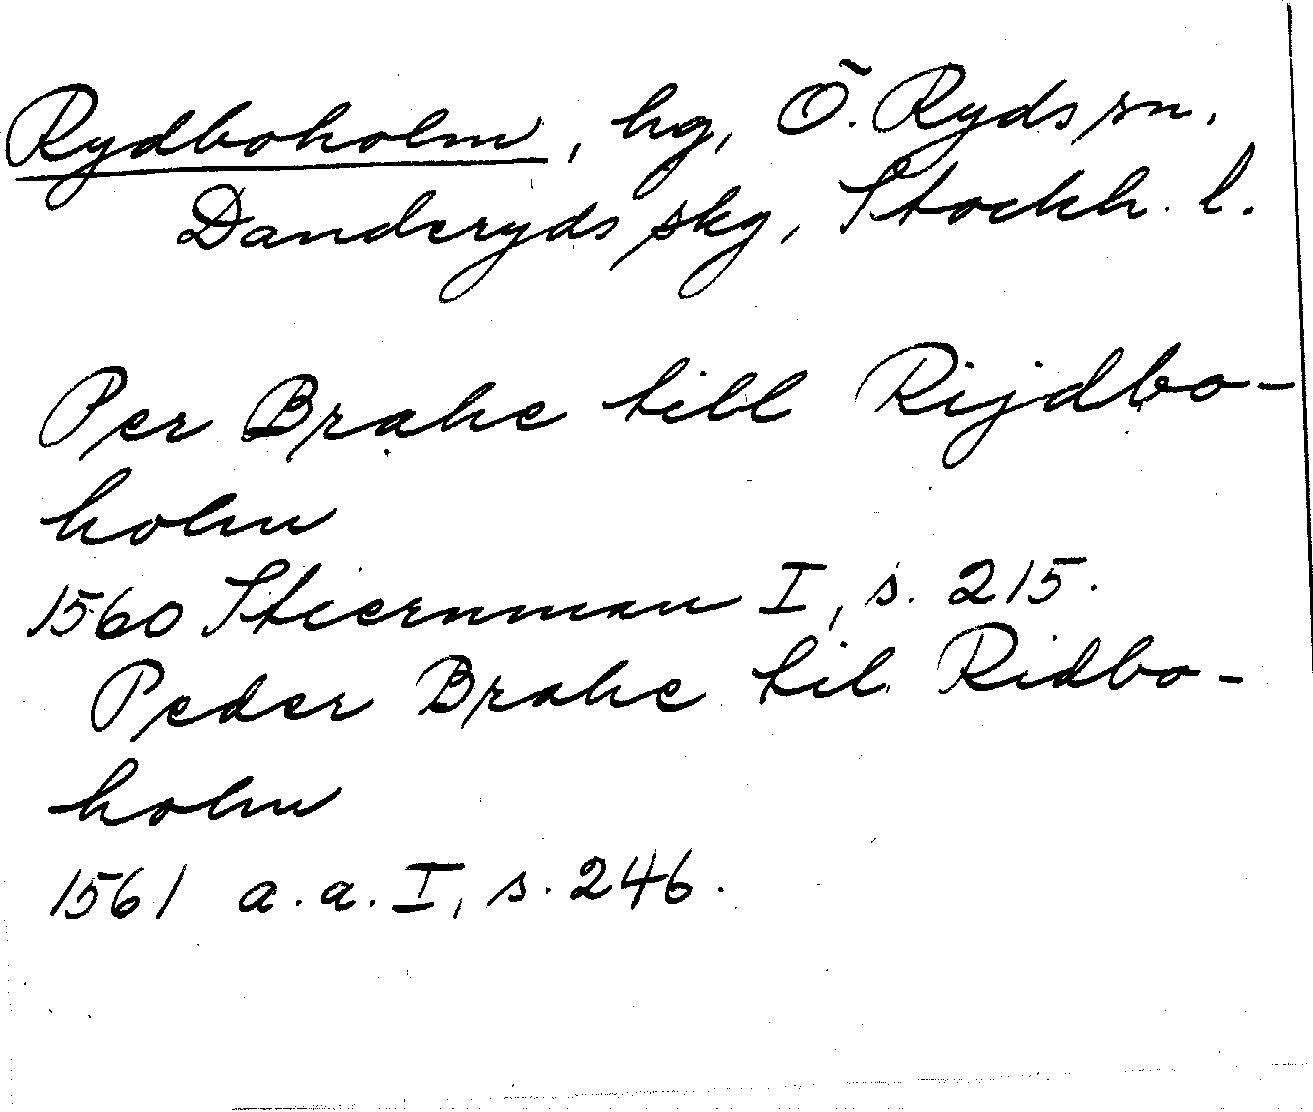 Rydboholm, hg, Ö. Ryds sn.
Danderyds skg, Stockh. l.
Per Brahe till Rijdbo-
holm
1560 Stiernman I, s. 215.
Peder Brahe til Ridbo-
holm
1561 a.a. I, s. 246.